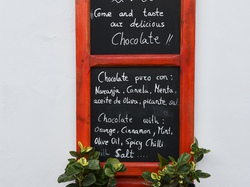 Come and taste
our delicious
Chocolate !!
Chocolate puro con:
Naranja, Canela, Menta,
aceite de Oliva, picante, sal
Chocolate with:
Orange, Cinnamon, Mint,
Olive Oil, Spicy Chilli
with Salt ...